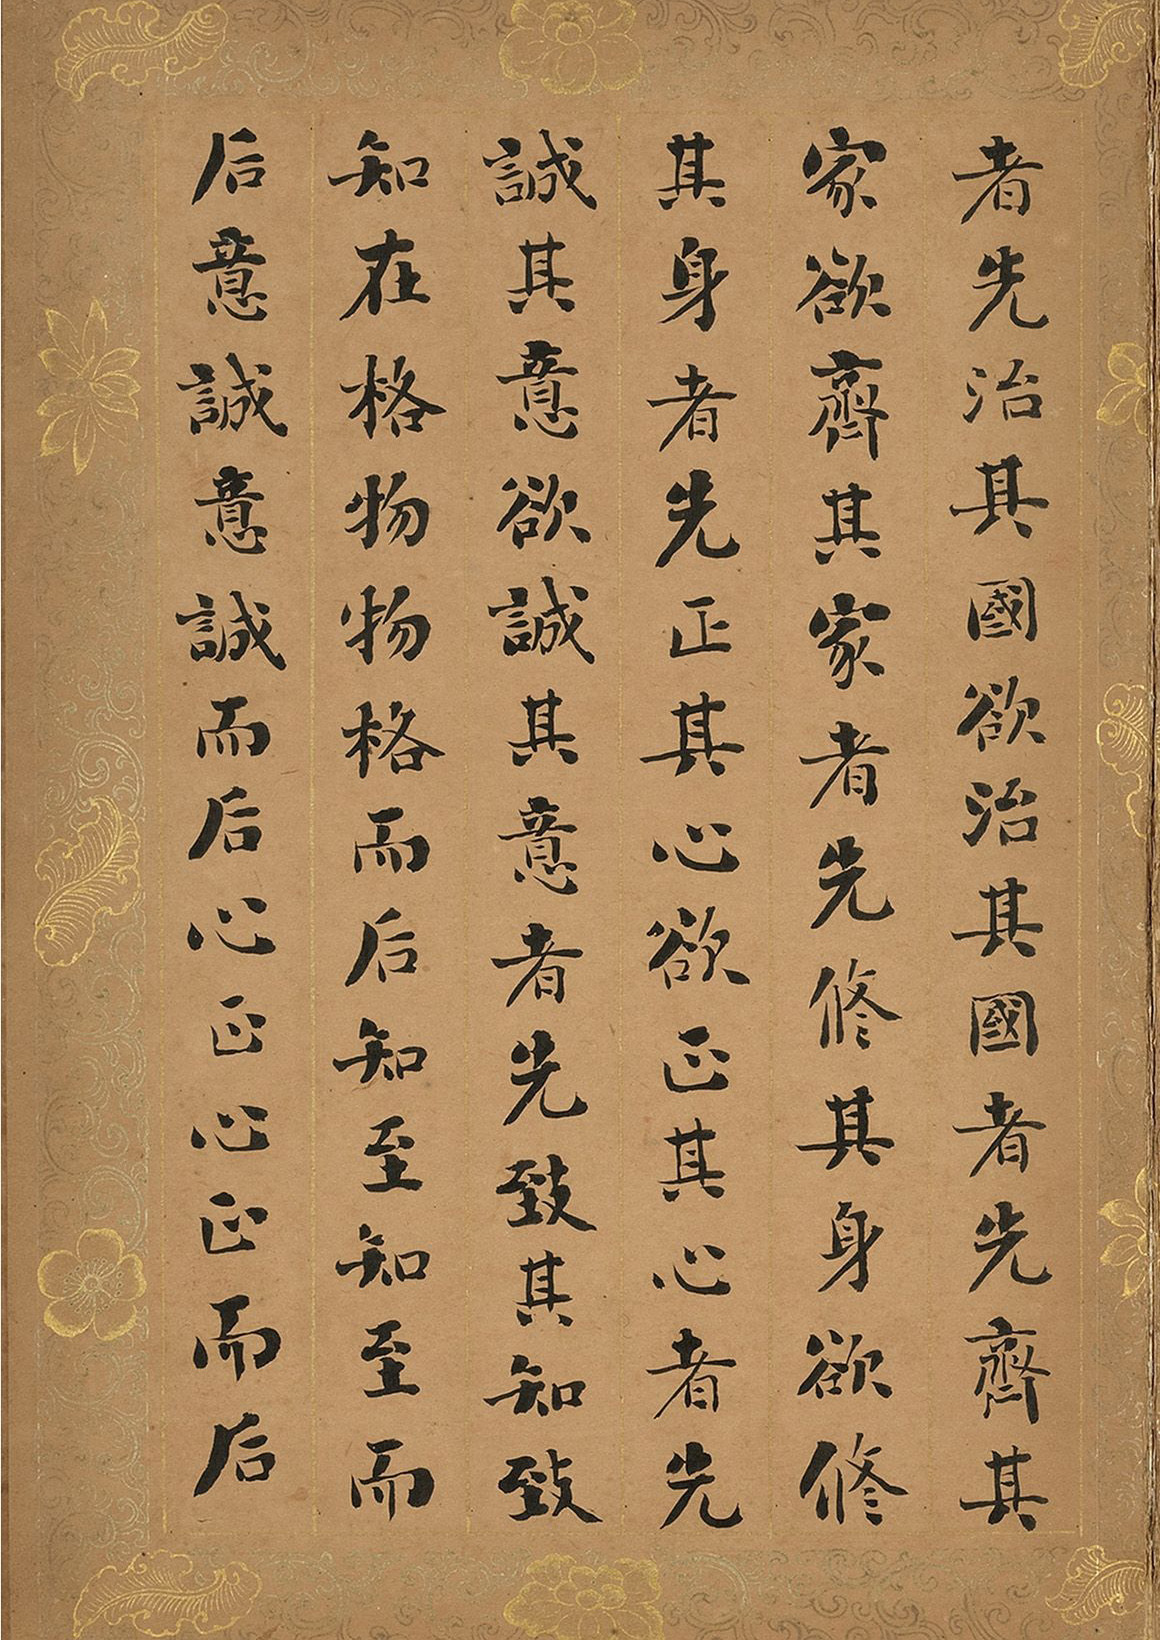 者先治其國欲治其國者先齊其
家欲齊其家者先修其身欲修
其身者先正其心欲正其心者先
誠其意欲誠其意者先致其知致
知在格物物格而后知至知至而
后意誠意誠而后心正心正而后